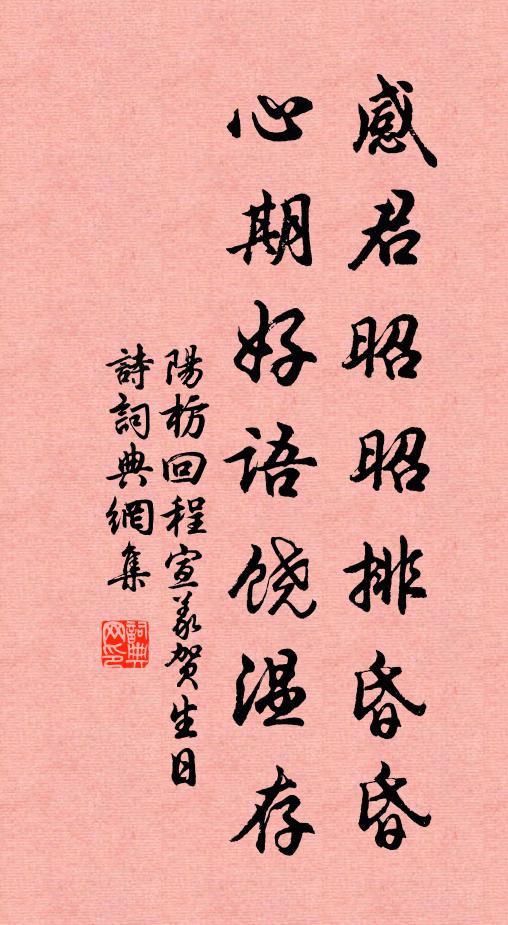 感君昭昭排昏昏
心期好语饶温存
陽枋回程宣義贺生日
詩詞典網集
詞典网印